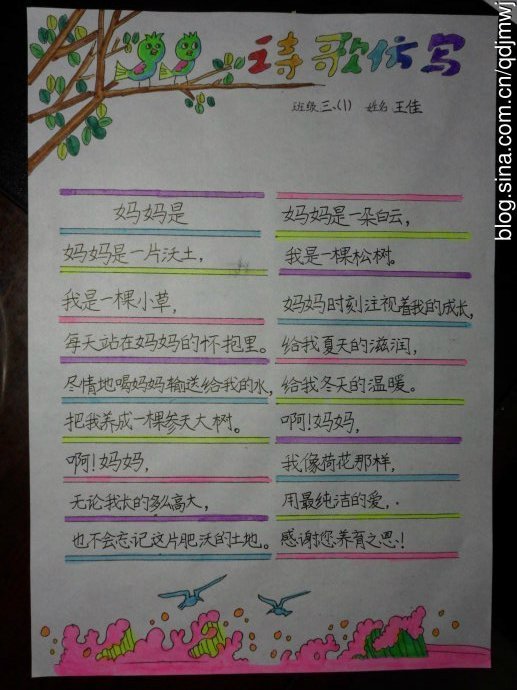 诗歌仿写
班级三.(1) 姓名 王佳
妈妈是
妈妈是一片沃土，
我是一棵小草，
每天站在妈妈的怀抱里。
尽情地喝妈妈输送给我的水，
把我养成一棵参天大树。
啊！妈妈，
无论我长的多么高大，
也不会忘记这片肥沃的土地。
妈妈是一朵白云，
我是一棵松树。
妈妈时刻注视着我的成长，
给我夏天的滋润，
给我冬天的温暖。
啊！妈妈，
我像荷花那样，
用最纯洁的爱，.
感谢您养育之恩！
blog.sina.com.cn/qdjmwj